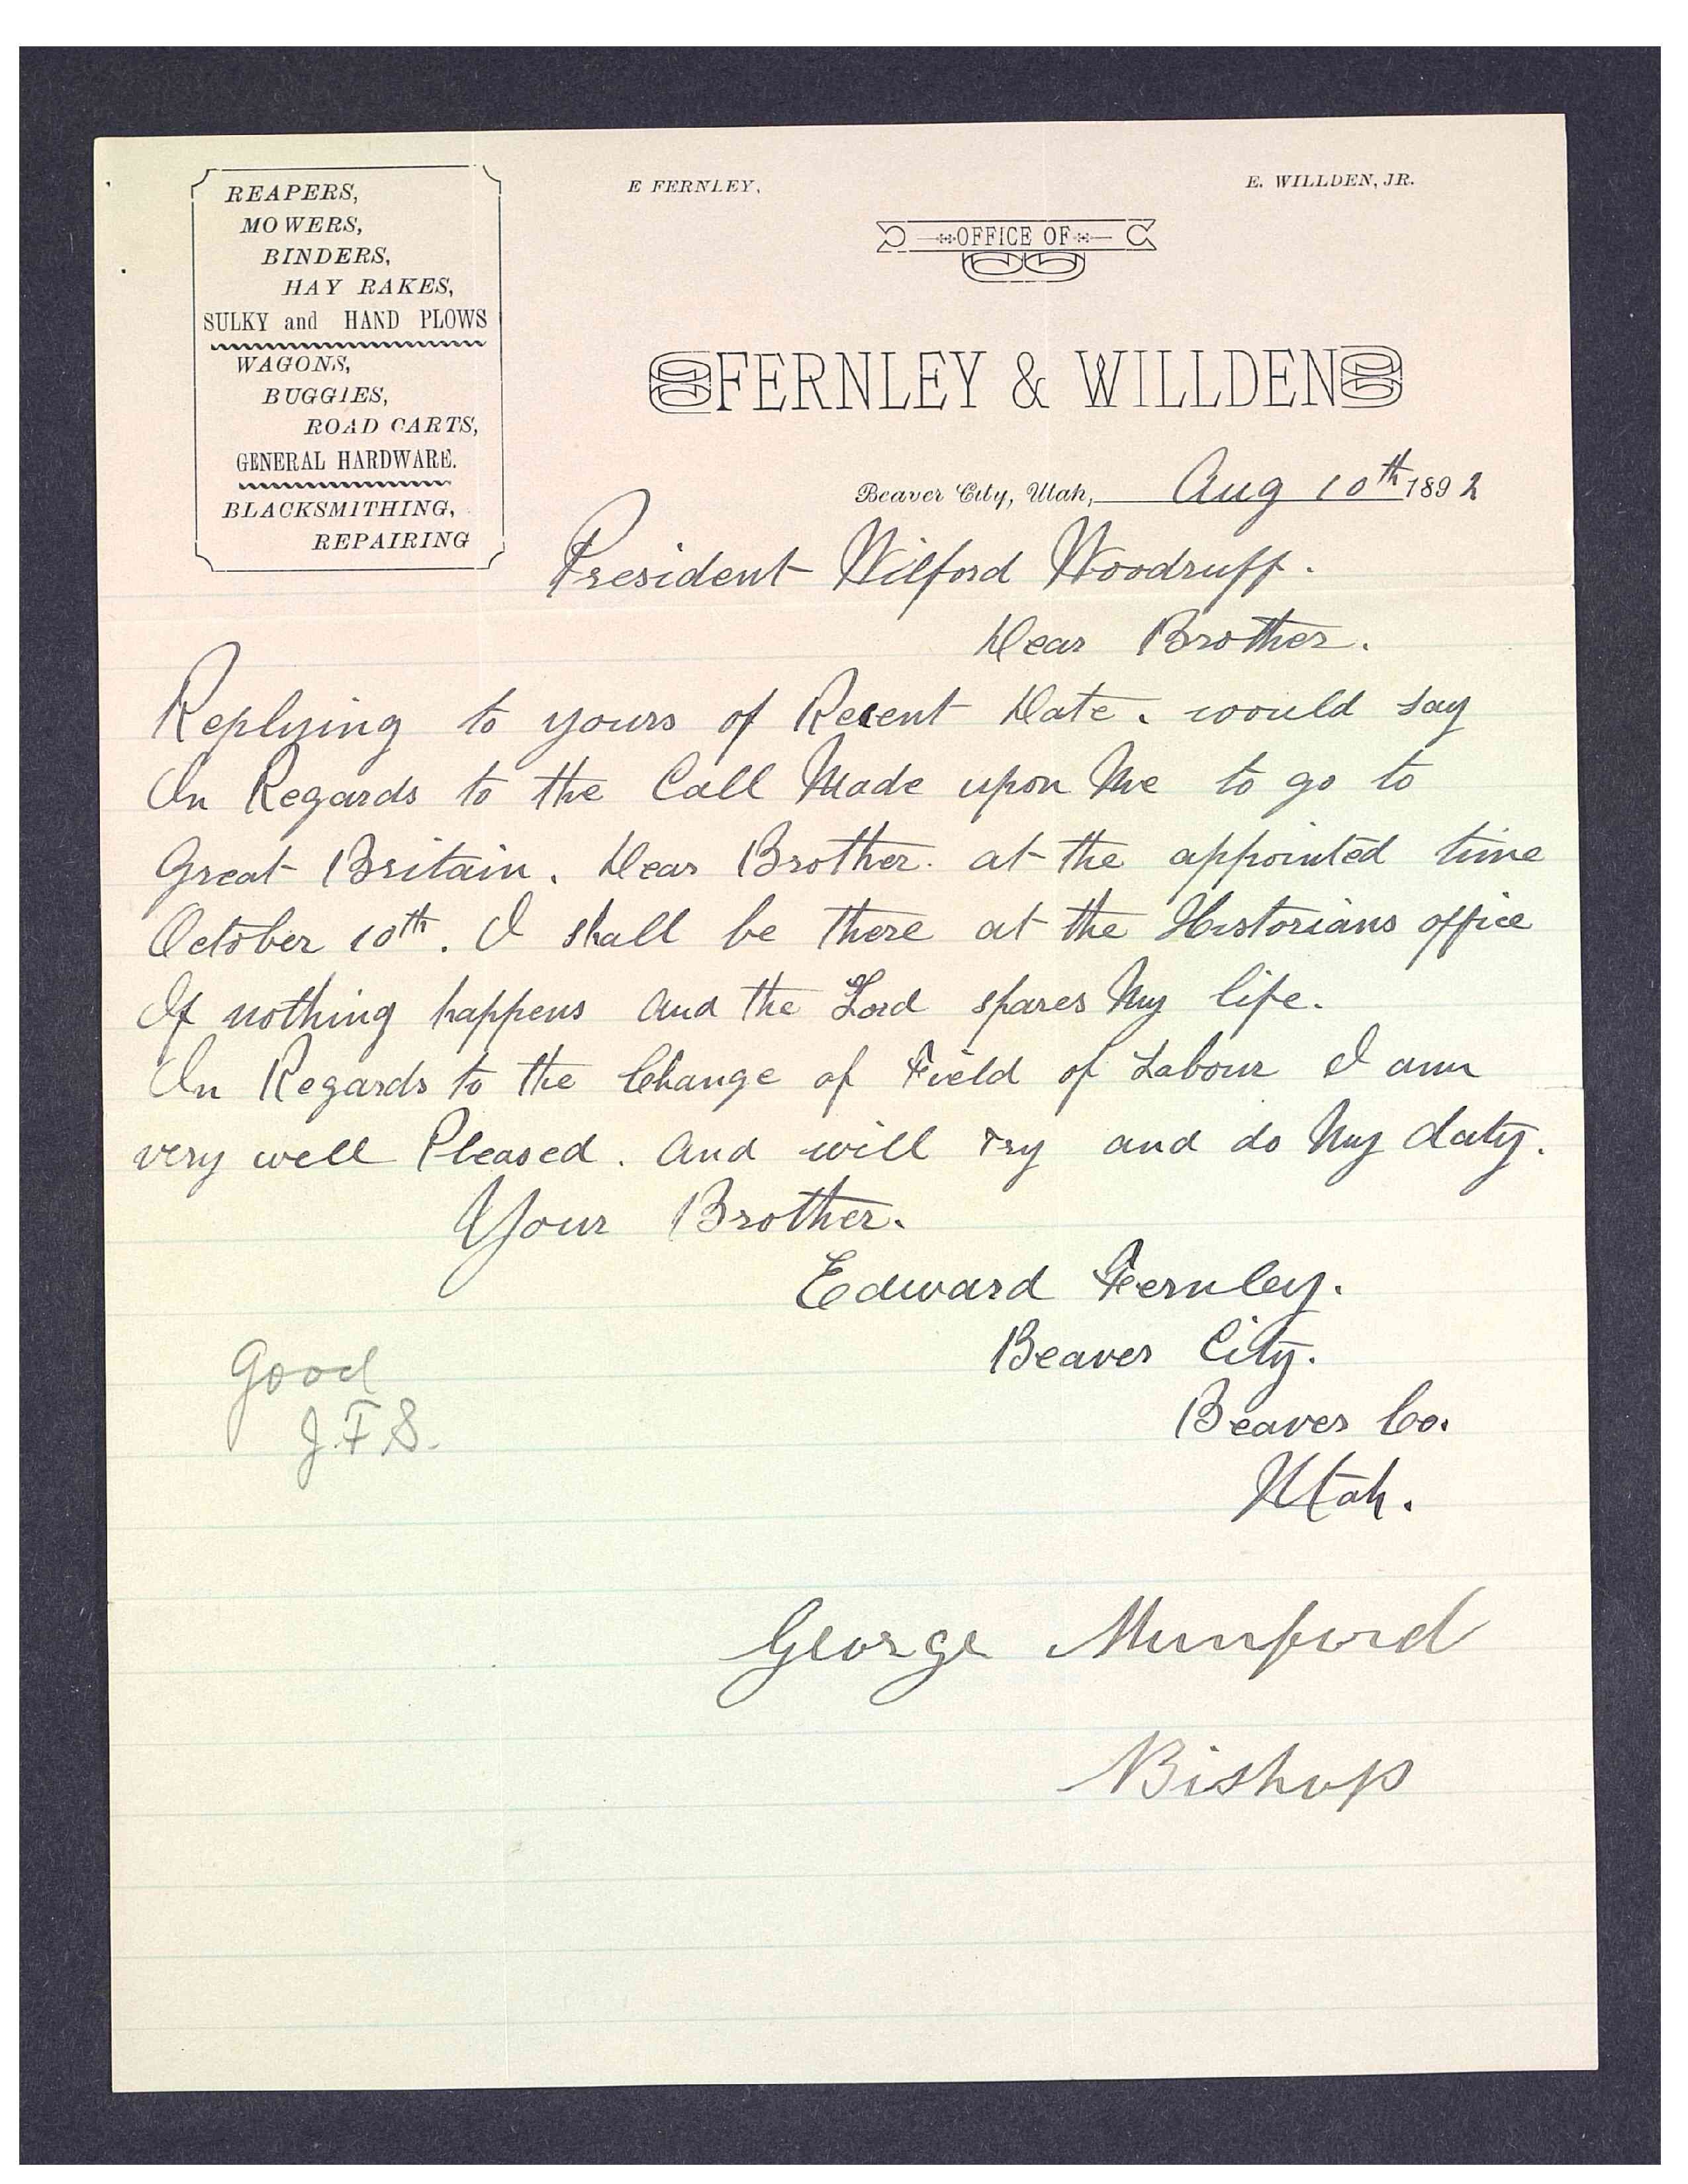 REAPERS,
MOWERS,
BINDERS,
HAY RAKES,
SULKY and HAND PLOWS
WAGONS,
BUGGIES,
ROAD CARTS,
GENERAL HARDWARE.
BLACKSMITHING,
REPAIRING
E FERNLEY,
E. WILLDEN, JR.
OFFICE OF
FERNLEY & WILLDEN
Beaver City, Utah, Aug 10th 1892
President Wilford Woodruff.
Dear Brother.
Replying to yours of Recent Date. would say
In Regards to the Call Made upon Me to go to
Great Britain. Dear Brother. at the appointed time
October 10th. I shall be there at the Historians office
If nothing happens and the Lord spares My life.
In Regards to the Change of Field of Labour I am
very well Pleased. And will Try and do My duty.
Your Brother.
Edward Fernley.
Beaver City.
Beaver Co.
Utah.
Good
J.F.S.
George Munford
Bishop